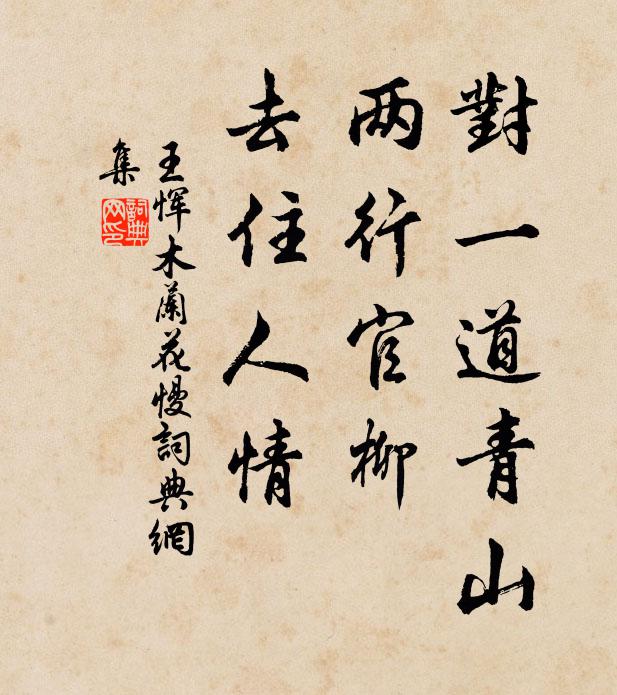 對一道青山
两行官柳
去住人情
王惲木蘭花慢詞典網
集
詞典
网印